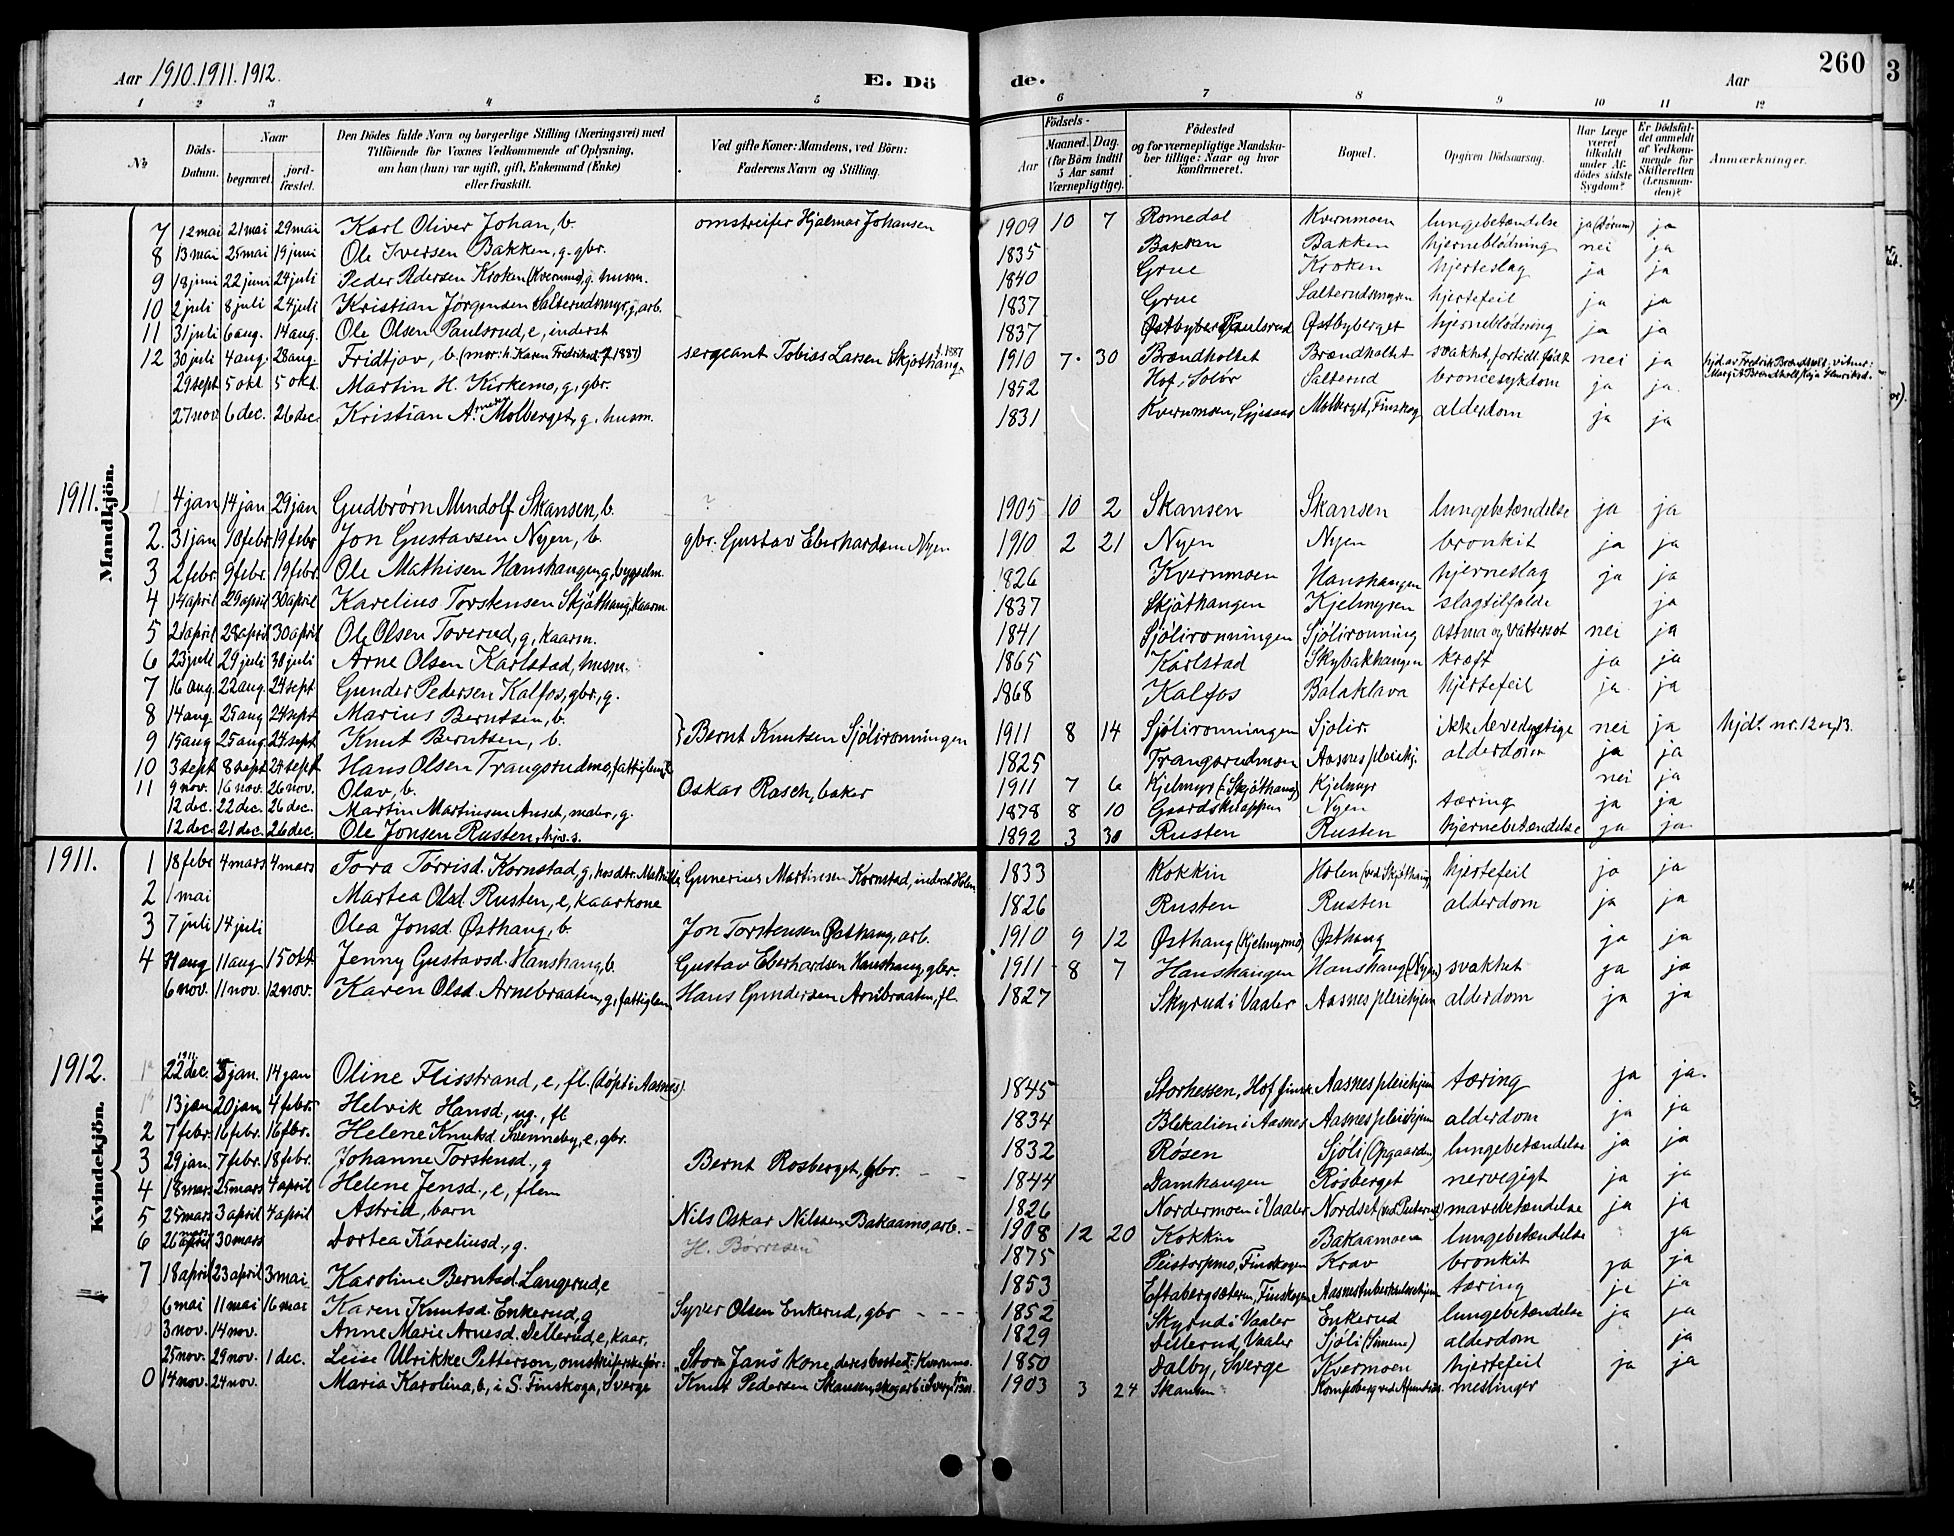 Aar 1910.1911.1912.
E. Dö
de.
Aar
260
3
1 2 3 4 5 6 7 8 9 10 11 12
No
Döds-Datum.
Naar
begravet.
jord-fæstet.
Den Dödes fulde Navn og borgerlige Stilling (Næringsvei) med
Tilföiende for Voxnes Vedkommende af Oplysning,
om han (hun) var ugift, gift, Enkemand (Enke)
eller fraskilt.
Ved gifte Koner: Mandens, ved Börn:
Faderens Navn og Stilling.
Födsels-
Aar
Maaned. Dag.
(for Börn indtil
5 Aar samt
Værnepligtige).
Födested
og for værnepligtige Mandska-
ber tillige: Naar og hvor
konfirmeret.
Bopæl.
Opgiven Dödsaarsag.
Har Læge
været
tilkaldt
under Af-
dödes sidste
Sygdom?
Er Dödsfal-
det anmeldt
af Vedkom-
mende for
Skifteretten
(Lensman-
den)?
Anmærkninger.
Mandkjön.
7 12 mai 21 mai 29 mai Karl Oliver Johan, b. omstreifer Hjalmar Johansen 1909 10 7 Romedal Kvernmoen lungebetændelse ja (Dørum) ja
8 13 mai 25 mai 19 juni Ole Iversen Bakken, g. gbr. 1835 Bakken Bakken hjerneblödning nei ja
9 18 juni 22 juni 24 juli Peder Pedersen Kroken (Kvernmo), g. husm. 1840 Grue Kroken hjerteslag ja ja
10 2 juli 8 juli 24 juli Kristian Jörgensen Salterudsmyr, g, arb. 1837 Grue Salterudsmyren hjertefeil ja ja
11 31 juli 6 aug. 14 aug. Ole Olsen Paulsrud, e, inderst 1837 Østbyberget Paulsrud Østbyberget hjerneblödning ja ja
12 30 juli 4 aug. 28 aug. Fridtjov, b. (mor: h. Karen Fredriksd. f. 1887) sergeant Tobias Larsen Skjöthang f. 1887 1910 7 30 Brændholtet Brændholtet svakhet, fortidl. födt nei ja
29 sept 5 okt 5 okt. Martin H. Kirkemo, g, gbr. 1852 Hof, Solör Salterud broncesykdom ja ja
27 nov 6 dec. 26 dec. Kristian A. Molberget, g. husm. 1831 Kvernmoen, Molberget, Finskog alderdom ja ja
1911.
1 4 jan 14 jan 29 jan Gudbrørn Mindolf Skansen, b. ? 1905 10 2 Skansen Skansen lungebetændelse ja ja
2. 31 jan 9 febr. 19 febr Jon Gustavsen Nyen, b. gbr. Gustav Eberhardsen Nyen 1910 2 21 Nyen Nyen bronkit ja ja
3 2 febr. 9 febr. 19 febr. Ole Mathisen Hanshangen, g, bygselm. 1826 Kvernmoen Hanshangen hjerneslag ja ja
4 14 april 29 april 30 april Karelius Torstensen Skjöthang, kaarm. 1837 Skjöthangen Kjelmyren slagtilfælde ja
5 21 april 28 april 30 april Ole Olsen Toverud, g, kaarm. 1841 Sjölironningen Sjölironning astma og vattersot nei ja
6 23 juli 29 juli 30 juli Arne Olsen Karlstad, husm. 1865 Karlstad Skybakhangen kræft ja ja
7 16 aug. 22 aug. 24 sept Gunder Pedersen Kalfos, gbr., g. 1868 Kalfos Balaklava hjertefeil ja ja
8 14 aug. 25 aug 24 sept Marius Berntsen, b.
9 15 aug 25 aug. 24 sept Knut Berntsen, b. } Bernt Knutsen Sjölironningen 1911 8 14 Sjölironningen Sjölir. ikke levedygtige nei ja hjdt. nr. 12 og 13.
10 3 sept 8 sept 24 sept Hans Olsen Trangsrudmo, fattiglem 1825 Trangsrudmoen Aasnes pleiehj. alderdom ja ja
11 9 nov. 16 nov. 26 nov. Olav, b. Oskar Rasch, baker 1911 7 6 Kjelmyr (Skjöthang) Kjelmyr nei ja
12 dec. 22 dec. 26 dec. Martin Martinsen, maler, g. 1878 8 10 Gaardsknappen Nyen tæring ja ja
12 dec 21 dec. 26 dec. Ole Jonsen Rusten, 1892 3 30 Rusten Rusten hjernebetændelse ja ja
1911.
1 18 febr 4 mars 4 mars Tora Torrisd. Kornstad, g, Gunerius Martinsen Kornstad, inderst Holen 1833 Kokkin Holen (ved Skjöthang) hjertefeil ja ja
2 1 mai Martea Olsd. Rusten, e, kaarkone 1826 Rusten Rusten alderdom ja ja
3 7 juli 14 juli Olea Jonsd. Østhang, b. Jon Torstensen Østhang, arb. 1910 9 12 Østhang (Kjelmyrmo) Østhang ja ja
4 aug 11 aug 15 okt. Jenny Gustavsd. Hanshang, b. Gustav Eberhardsen Hanshang, gbr. 1911 8 7 Hanshangen Hanshang (Nyen) svakhet ja ja
6 nov. 11 nov. 12 nov. Karen Olsd. Arnebraaten, g, fattiglem Hans Gundersen Arnebraaten, fl. 1827 Skyrud i Vaaler Aasnes pleiehjem alderdom ja ja
1912.
Kvindekjön.
1a 1911 22 dec. 5 jan. 14 jan Oline Flisstrand, e, fl. (döpt i Aasnes) 1845 Storhessen, Hof finsk. Aasnes pleiehjem tæring ja ja
1b 13 jan 20 jan 4 febr. Helvik Hansd, ug., fl 1834 Blekalien i Aasnes Aasnes pleiehjem alderdom ja ja
2 7 febr. 16 febr. 16 fbr. Helene Knutsd. Svenneby, e, gbr. 1832 Røsen Sjöli (Opgaarden) lungebetændelse ja ja
3 29 jan. 7 febr. 18 febr. Johanne Torstensd., g Bernt Rosberget, gbr. 1844 Damhangen Rosberget nervegigt ja ja
4 18 mars 25 mars 4 april Helene Jensd., e, flem 1826 Nordermoen i Vaaler Nordset mavebetændelse ja ja
5 25 mars 3 april 4 april Astrid, barn Nils Oskar Nilssen Bakaamo, arb. 1908 12 20 Kokkin Bakaamoen lungebetændelse ja
6 26 mars 30 mars Dortea Kareliusd., g. H. Børresen 1875 Peistorpmo, Finskogen Krav bronkit ja ja
7 18 april 23 april 3 mai Karoline Berntsd. Langerud, e 1853 Eftabergsæteren, Finskogen Aasnes tuberkulosehjem tæring ja ja
6 mai 11 mai 16 mai Karen Knutsd. Enkerud, g Syver Olsen Enkerud, gbr 1852 Skyrud i Vaaler Enkerud lungebetændelse ja ja
10 3 nov. 14 nov. Anne Marie Arnesd. Dellerud, e, kaar. 1829 Dellerud, Vaaler Sjöli (Simene) alderdom ja
25 nov. 29 nov. 1 dec. Leise Ulrikke Petterson, omstreiferske för: "Stora Jans" kone, deres bosted: Kvernmo. 1850 Dalby, Sverge Kvermoen hjertefeil ja ja
0 14 nov. 24 nov. Maria Karolina, b, i S. Finskoga, Sverge Knut Pedersen Skansen, skogarb. i Sverge 1903 3 24 Skansen meslinger